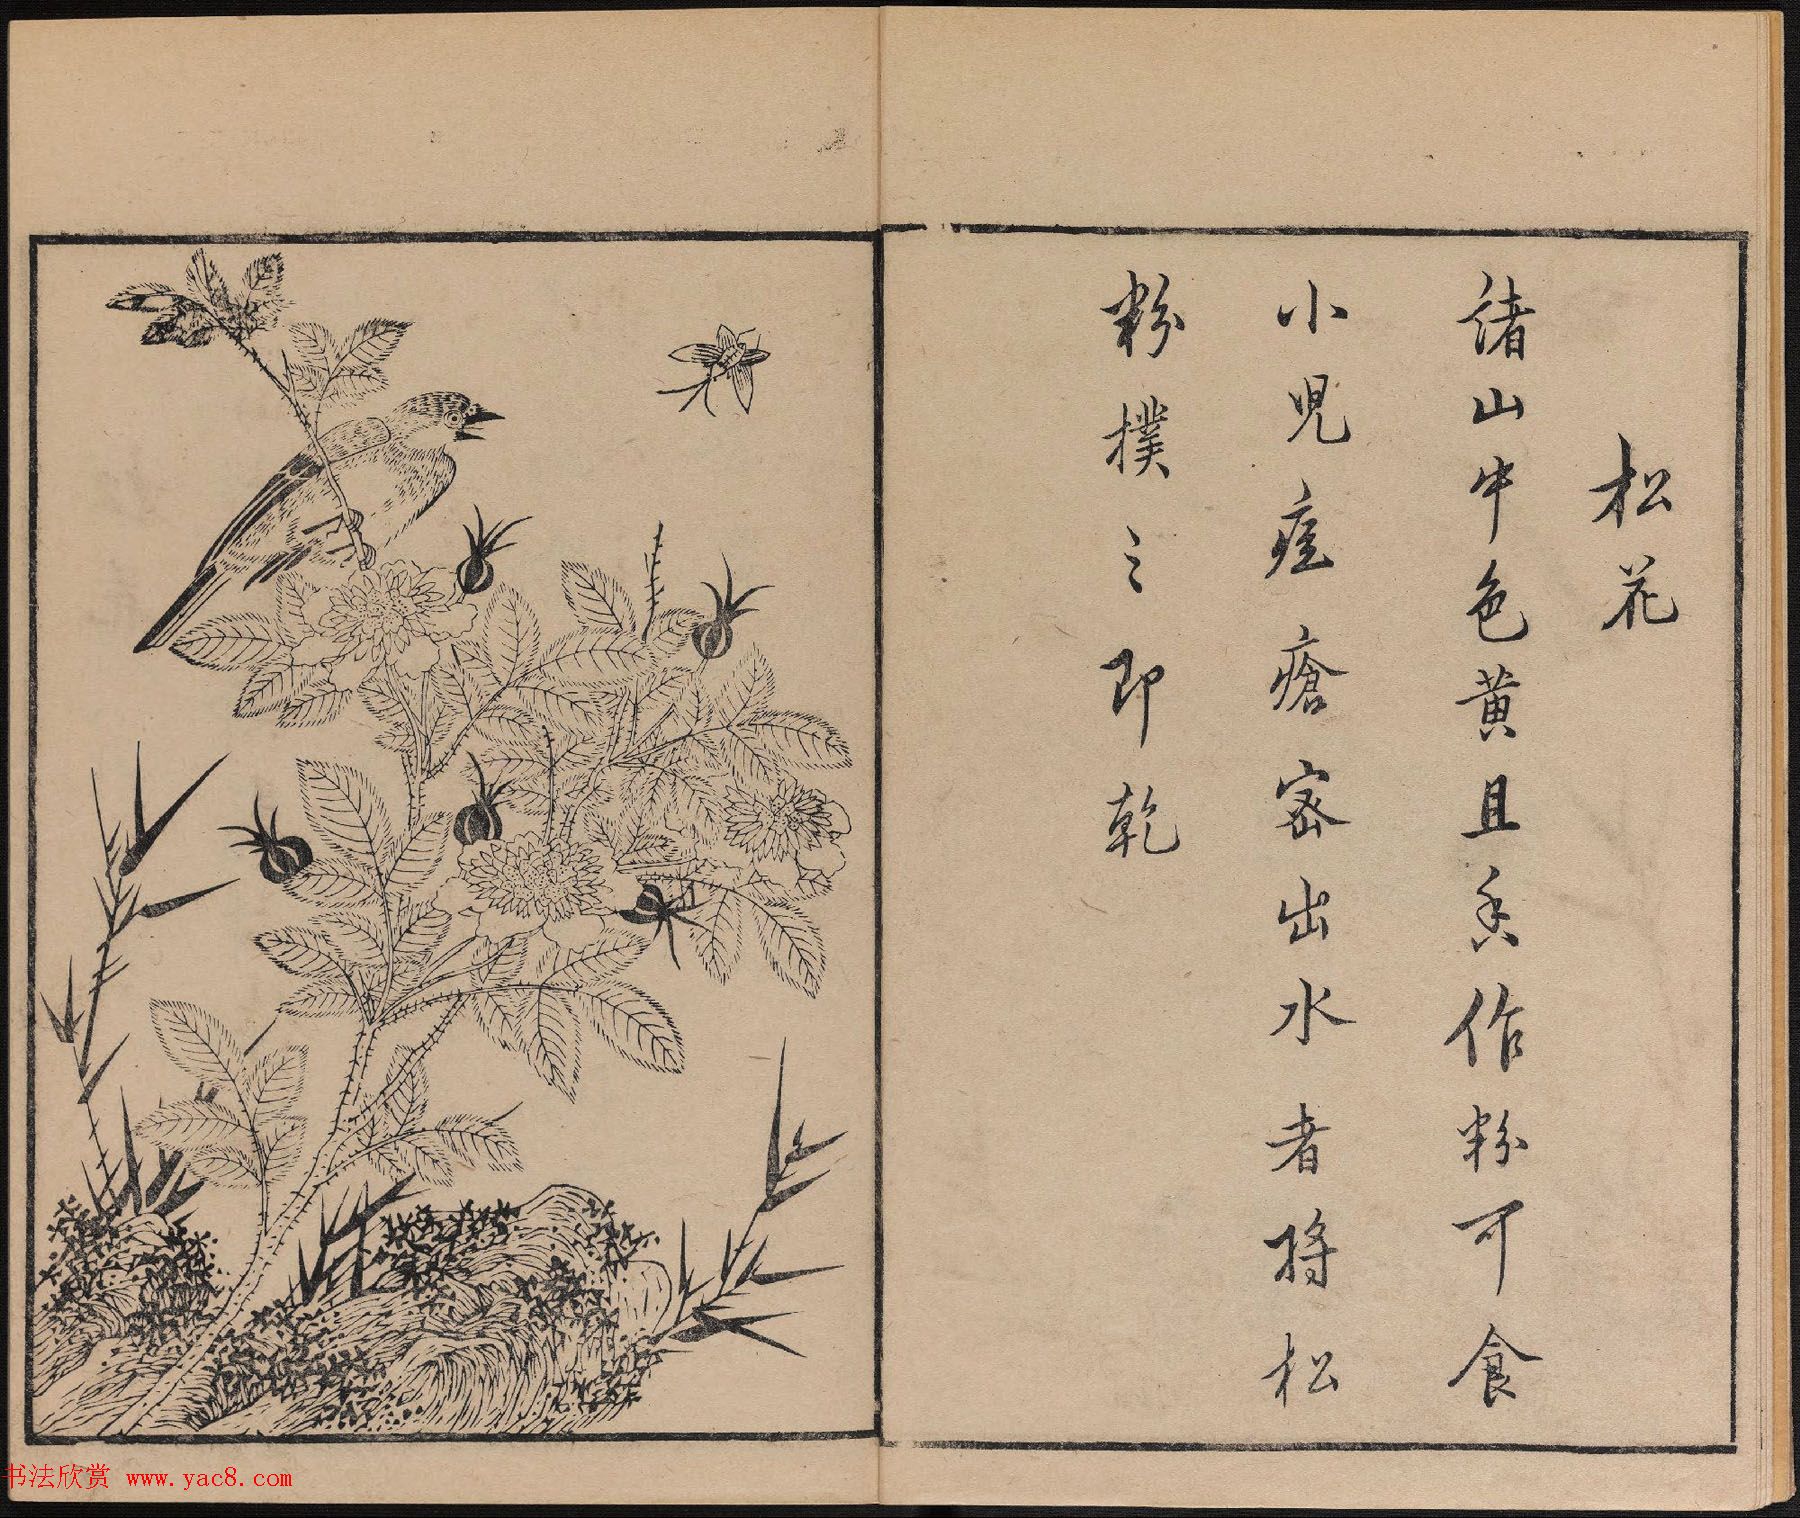 松花
諸山中色黄且香作粉可食
小児痘瘡密出水者將松
粉撲之即乾
书法欣赏 www.yac8.com